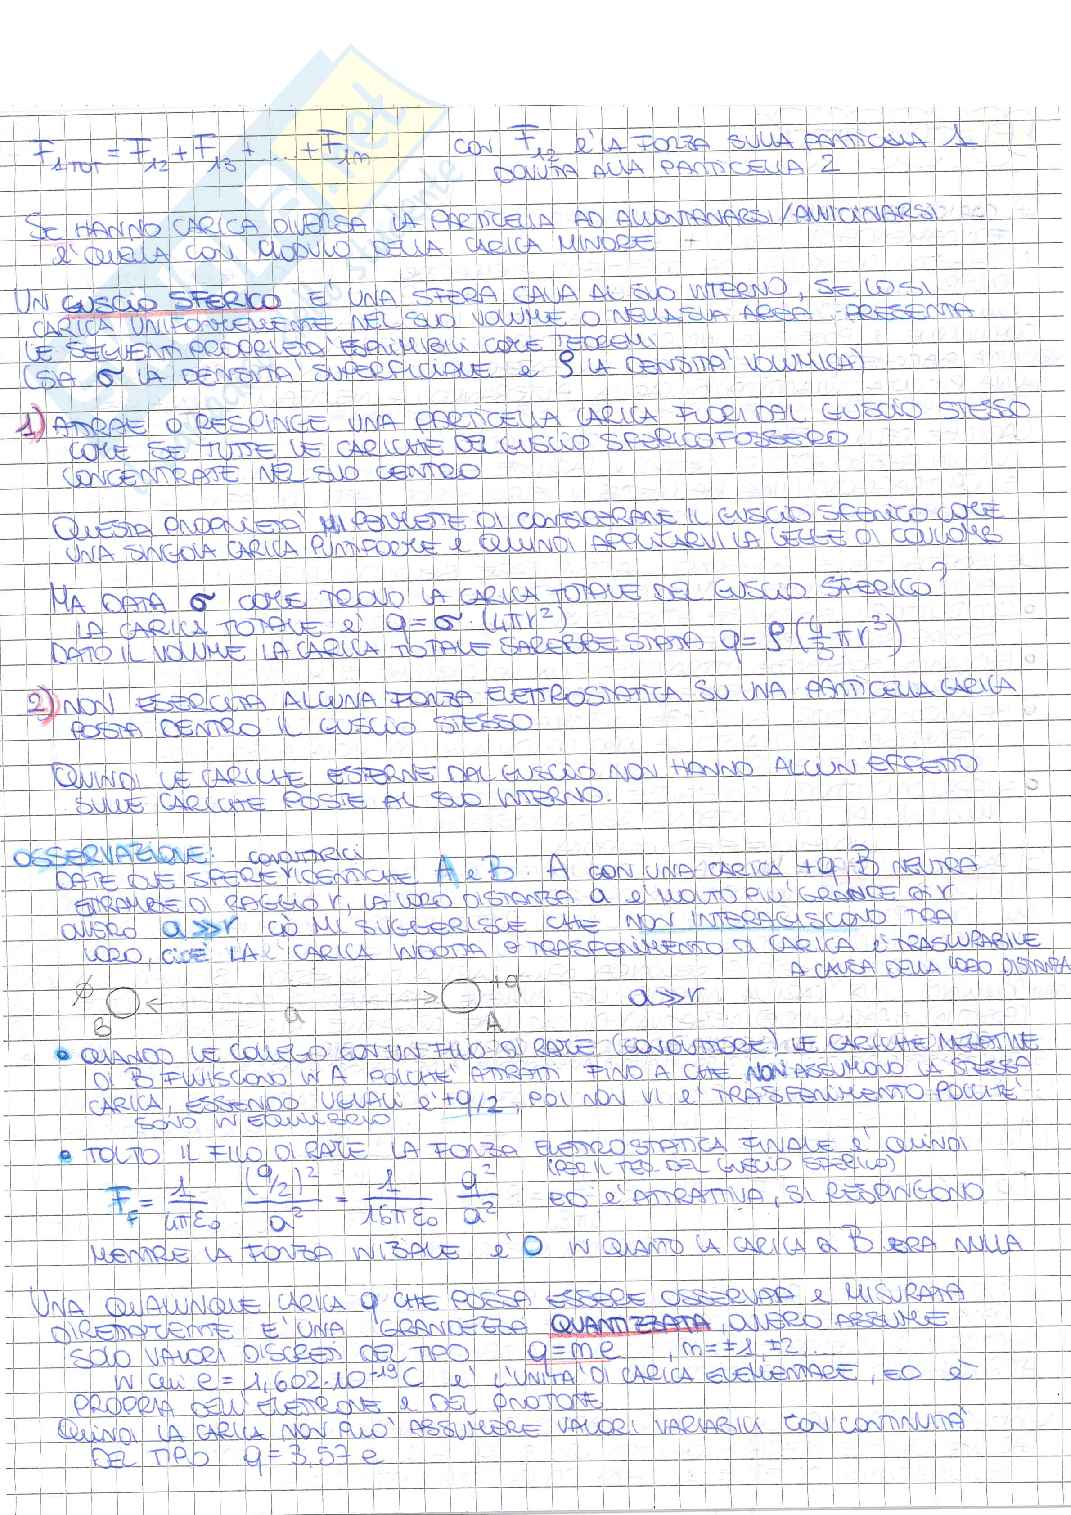 F₁TOT = F₁₂ + F₁₃ + ... + F₁n CON F₁₂ E' LA FORZA SULLA PARTICELLA 1
DOVUTA ALLA PARTICELLA 2
SE HANNO CARICA DIVERSA LA PARTICELLA AD ALLONTANARSI/AVVICINARSI
E' QUELLA CON MODULO DELLA CARICA MINORE
UN GUSCIO SFERICO E' UNA SFERA CAVA AL SUO INTERNO, SE LO SI
CARICA UNIFORMEMENTE NEL SUO VOLUME O NELLA SUA AREA PRESENTA
LE SEGUENTI PROPRIETA' ESPRIMIBILI COME TEOREMI
(SIA σ LA DENSITA' SUPERFICIALE E ρ LA DENSITA' VOLUMICA)
1) ATTRAE O RESPINGE UNA PARTICELLA CARICA FUORI DAL GUSCIO STESSO
COME SE TUTTE LE CARICHE DEL GUSCIO SFERICO FOSSERO
CONCENTRATE NEL SUO CENTRO
QUESTA PROPRIETA' MI PERMETTE DI CONSIDERARE IL GUSCIO SFERICO COME
UNA SINGOLA CARICA PUNTIFORME E QUINDI APPLICARVI LA LEGGE DI COULOMB
MA DATA σ COME TROVO LA CARICA TOTALE DEL GUSCIO SFERICO?
LA CARICA TOTALE E' q = σ · (4πr²)
DATO IL VOLUME LA CARICA TOTALE SAREBBE STATA q = ρ (4/3 πr³)
2) NON ESERCITA ALCUNA FORZA ELETTROSTATICA SU UNA PARTICELLA CARICA
POSTA DENTRO IL GUSCIO STESSO
QUINDI LE CARICHE ESTERNE DAL GUSCIO NON HANNO ALCUN EFFETTO
SULLE CARICHE POSTE AL SUO INTERNO.
OSSERVAZIONE: CONDUTTRICI
DATE DUE SFERE IDENTICHE A E B. A CON UNA CARICA +q, B NEUTRA
ENTRAMBE DI RAGGIO r, LA LORO DISTANZA a E' MOLTO PIU' GRANDE DI r
OVVERO a ≫ r CIO' MI SUGGERISCE CHE NON INTERAGISCONO TRA
LORO, CIOE' LA CARICA INDOTTA O TRASFERIMENTO DI CARICA E' TRASCURABILE
A CAUSA DELLA LORO DISTANZA
∅ B a +q A a ≫ r
• QUANDO LE COLLEGO CON UN FILO DI RAME (CONDUTTORE) LE CARICHE NEGATIVE
DI B FLUISCONO IN A POICHE' ATTRATTI FINO A CHE NON ASSUMONO LA STESSA
CARICA, ESSENDO UGUALI E' +q/2, POI NON VI E' TRASFERIMENTO POICHE'
SONO IN EQUILIBRIO
• TOLTO IL FILO DI RAME LA FORZA ELETTROSTATICA FINALE E' QUINDI
(PER IL TEO. DEL GUSCIO SFERICO)
F_f = 1/4πε₀ (q/2)²/a² = 1/16πε₀ q²/a² ED E' ATTRATTIVA, SI RESPINGONO
MENTRE LA FORZA INIZIALE E' 0 IN QUANTO LA CARICA DI B ERA NULLA
UNA QUALUNQUE CARICA q CHE POSSA ESSERE OSSERVATA E MISURATA
DIRETTAMENTE E' UNA GRANDEZZA QUANTIZZATA, OVVERO ASSUME
SOLO VALORI DISCRETI DEL TIPO q = ne , n = ±1, ±2, ...
IN CUI e = 1,602·10⁻¹⁹ C E' L'UNITA' DI CARICA ELEMENTARE, ED E'
PROPRIA DELL'ELETTRONE E DEL PROTONE
QUINDI LA CARICA NON PUO' ASSUMERE VALORI VARIABILI CON CONTINUITA'
DEL TIPO q = 3,57 e